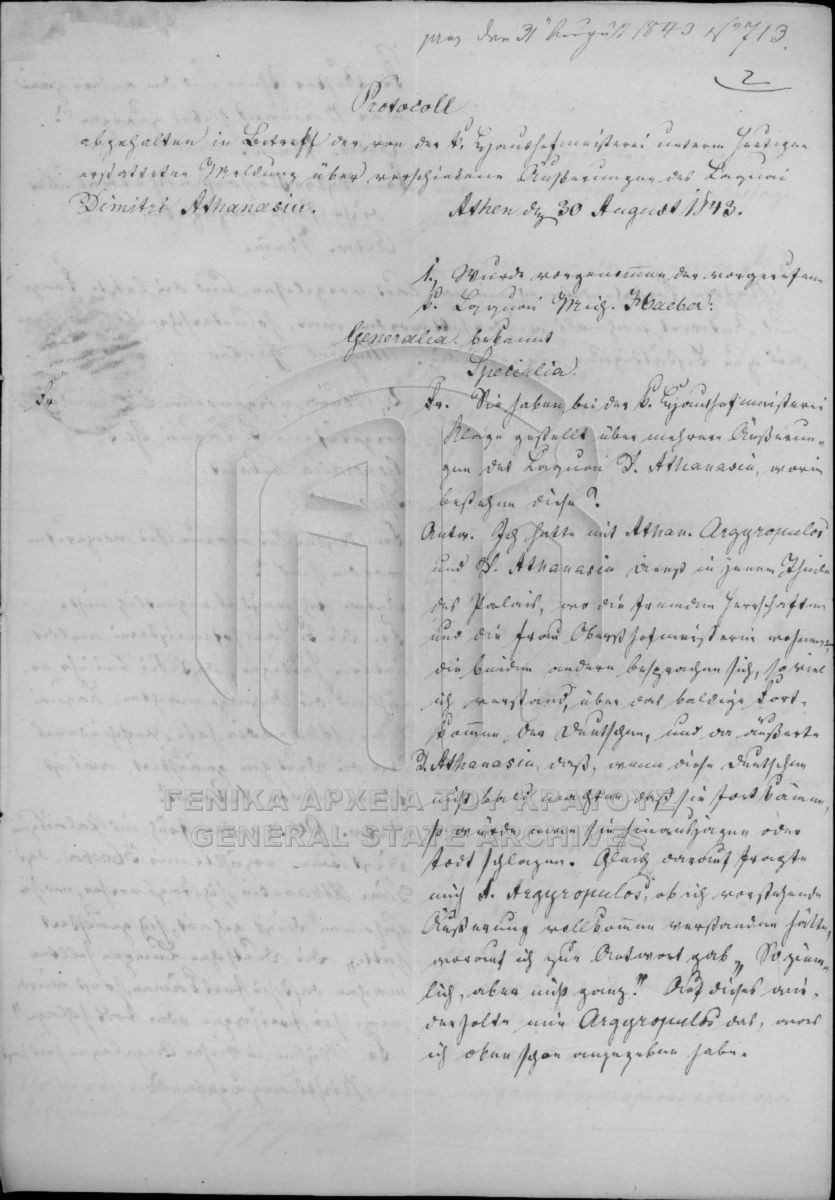 praes den 31 August 1843 No 713.
2
Protocoll
abgehalten in Betreff der von der k. Haushofmeisterei unterm Heutigen
erstatteten Meldung über verschiedene Äußerungen des Laquai
Dimitri Athanasiu.
Athen den 30 August 1843.
1. Wurde vorgenommen der vorgerufene
k. Laquai Mich. Haeber:
Generalia: bekannt
Specialia.
Fr
Fr. Sie haben bei der k. Haushofmeisterei
Klage gestellt über mehrere Äußerun-
gen des Laquai D. Athanasiu, worin
bestehen diese?
Antw. Ich hatte mit Athan. Argyropulos
und D. Athanasiu Dienst in jenem Theile
des Palais, wo die fremden Herrschaften
und die Frau Obersthofmeisterin wohnen;
die beiden andern besprachen sich, so viel
ich verstand, über das baldige Fort-
kommen der Deutschen, und da äußerte
D. Athanasiu, daß, wenn diese Deutschen
nicht bald machten daß sie fort kämen,
so würde man sie hinausjagen oder
todt schlagen. Gleich darauf fragte
mich A. Argyropulos, ob ich vorstehende
Äußerung vollkommen verstanden hätte,
worauf ich zur Antwort gab „So ziem-
lich, aber nicht ganz." Auf dieses wie-
derholte mir Argyropulos das, was
ich oben schon angegeben habe.
ΓΕΝΙΚΑ ΑΡΧΕΙΑ ΤΟΥ ΚΡΑΤΟΥΣ
GENERAL STATE ARCHIVES